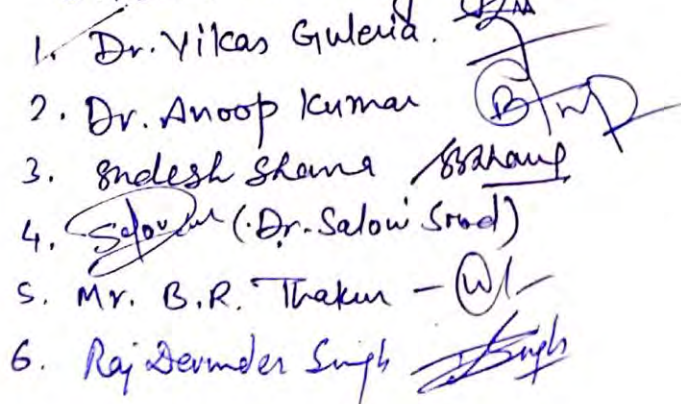 1. Dr. Vikas Guleria.
2. Dr. Anoop Kumar
3. Indesh Shama
4. (Dr. Salow Sood)
5. Mr. B.R. Thakur -
6. Raj Devinder Singh Singh